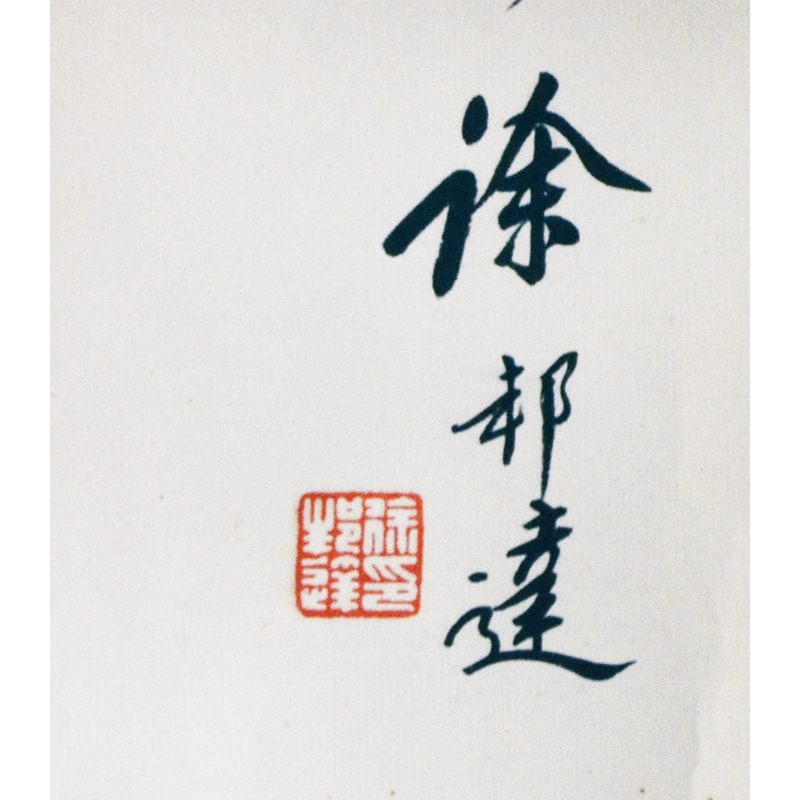 徐邦達
徐印
邦達